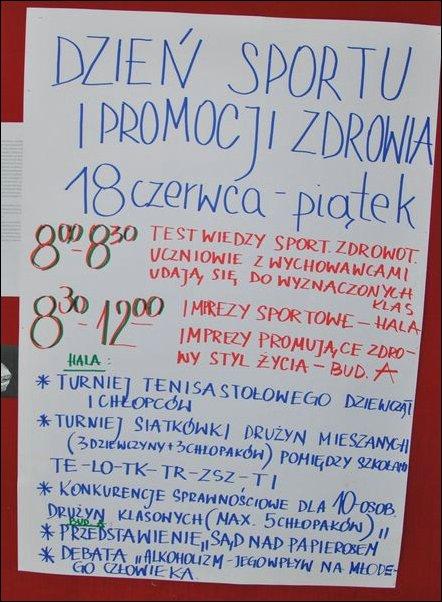 DZIEŃ SPORTU
I PROMOCJI ZDROWIA
18 czerwca - piątek
8⁰⁰-8³⁰ TEST WIEDZY SPORT. ZDROWOT.
UCZNIOWIE Z WYCHOWAWCAMI
UDAJĄ SIĘ DO WYZNACZONYCH
KLAS
8³⁰-12⁰⁰ IMPREZY SPORTOWE - HALA
IMPREZY PROMUJĄCE ZDRO-
WY STYL ŻYCIA - BUD. A
HALA:
* TURNIEJ TENISA STOŁOWEGO DZIEWCZĄT
I CHŁOPCÓW
* TURNIEJ SIATKÓWKI DRUŻYN MIESZANYCH
(3 DZIEWCZYNY + 3 CHŁOPAKÓW) POMIĘDZY SZKOŁAMI
TE-LO-TK-TR-ZSZ-TI
* KONKURENCJE SPRAWNOŚCIOWE DLA 10-OSOB.
DRUŻYN KLASOWYCH (MAX. 5 CHŁOPAKÓW)
BUD. A
* PRZEDSTAWIENIE „SĄD NAD PAPIEROSEM"
* DEBATA „ALKOHOLIZM - JEGO WPŁYW NA MŁODE-
GO CZŁOWIEKA.